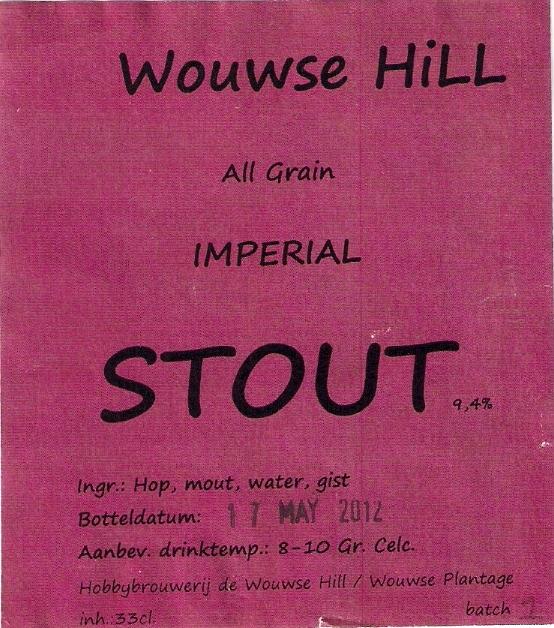 Wouwse HiLL
All Grain
IMPERIAL
STOUT 9,4%
Ingr.: Hop, mout, water, gist
Botteldatum: 17 MAY 2012
Aanbev. drinktemp.: 8-10 Gr. Celc.
Hobbybrouwerij de Wouwse Hill / Wouwse Plantage
inh.:33cl. batch